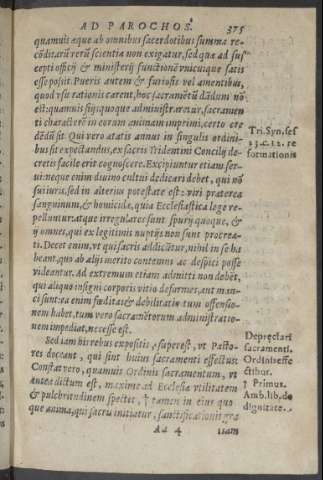 AD PAROCHOS. 375
quamuis æque ab omnibus sacerdotibus summa re-
cōditarū rerū scientia non exigatur, sed quæ ad sus
cepti officij & ministerij functionē vnicuique satis
esse possit. Pueris autem & furiosis vel amentibus,
quod vsu rationis carent, hoc sacramētū dādum nō
est: quamuis sijs quoque administraretur, sacramen
ti characterē in eorum animam imprimi, certo cre
dēdū sit Qui vero ætatis annus in singulis ordini-
bus sit expectandus, ex sacris Tridentini Concilij de-
cretis facile erit cognoscere. Excipiuntur etiam serui:
neque enim diuino cultui dedicari debet, qui nō
sui iuris, sed in alterius potestate est: viri præterea
sanguinum, & homicidæ, quia Ecclesiastica lege re-
pelluntur, atque irregulares sunt spurij quoque, &
ij omnes, qui ex legitimis nuptijs non sunt procrea-
ti. Decet enim, vt qui sacris addicātur, nihil in se ha
beant, quo ab alijs merito contemni ac despici posse
videantur. Ad extremum etiam admitti non debēt,
qui aliquo insigni corporis vitio deformes, aut man-
ci sunt: ea enim fœditas & debilitatio tum offensio-
nem habet, tum vero sacramētorum administratio-
nem impediat, necesse est.
Sed iam his rebus expositis, superest, vt Pasto-
res doceant, qui sint huius sacramenti effectus.
Constat vero, quamuis Ordinis sacramentum, vt
antea dictum est, maxime ad Ecclesiæ vtilitatem
& pulchritudinem spectet, † tamen in eius quo
que anima, qui sacris initiatur, sanctificationis gra
Aa 4 tiam
Tri. Syn. ses
23. c. 12. re
formationis
Depręclari
sacramenti.
Ordinis effe
ctibus.
† Primus.
Amb. lib. de
dignitate.